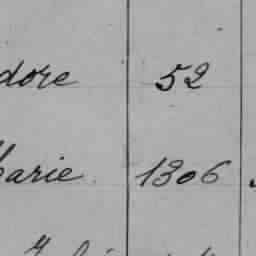 dore 52
Marie 1306